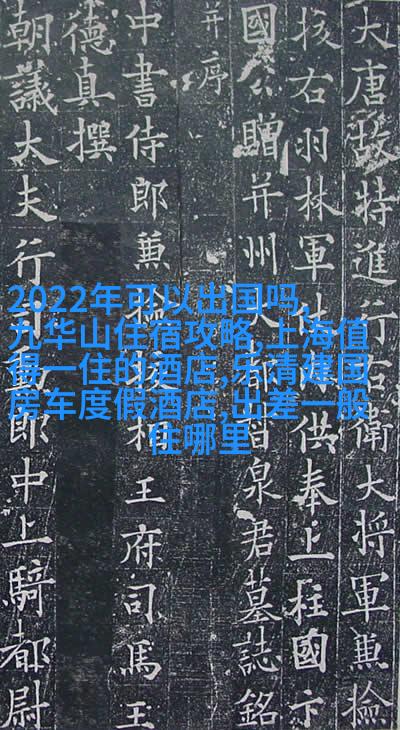 大唐故特進行右衛大將軍兼撿
挍右羽林軍仗供奉上柱國卞
國公贈并州大都督泉君墓誌銘
并序
中書侍郎兼撿挍相王府司馬王
德真撰
朝議大夫行司勳郎中上騎都尉
2022年可以出国吗,
九华山住宿攻略,上海值
得一住的酒店,乐清建国
房车度假酒店,出差一般
住哪里